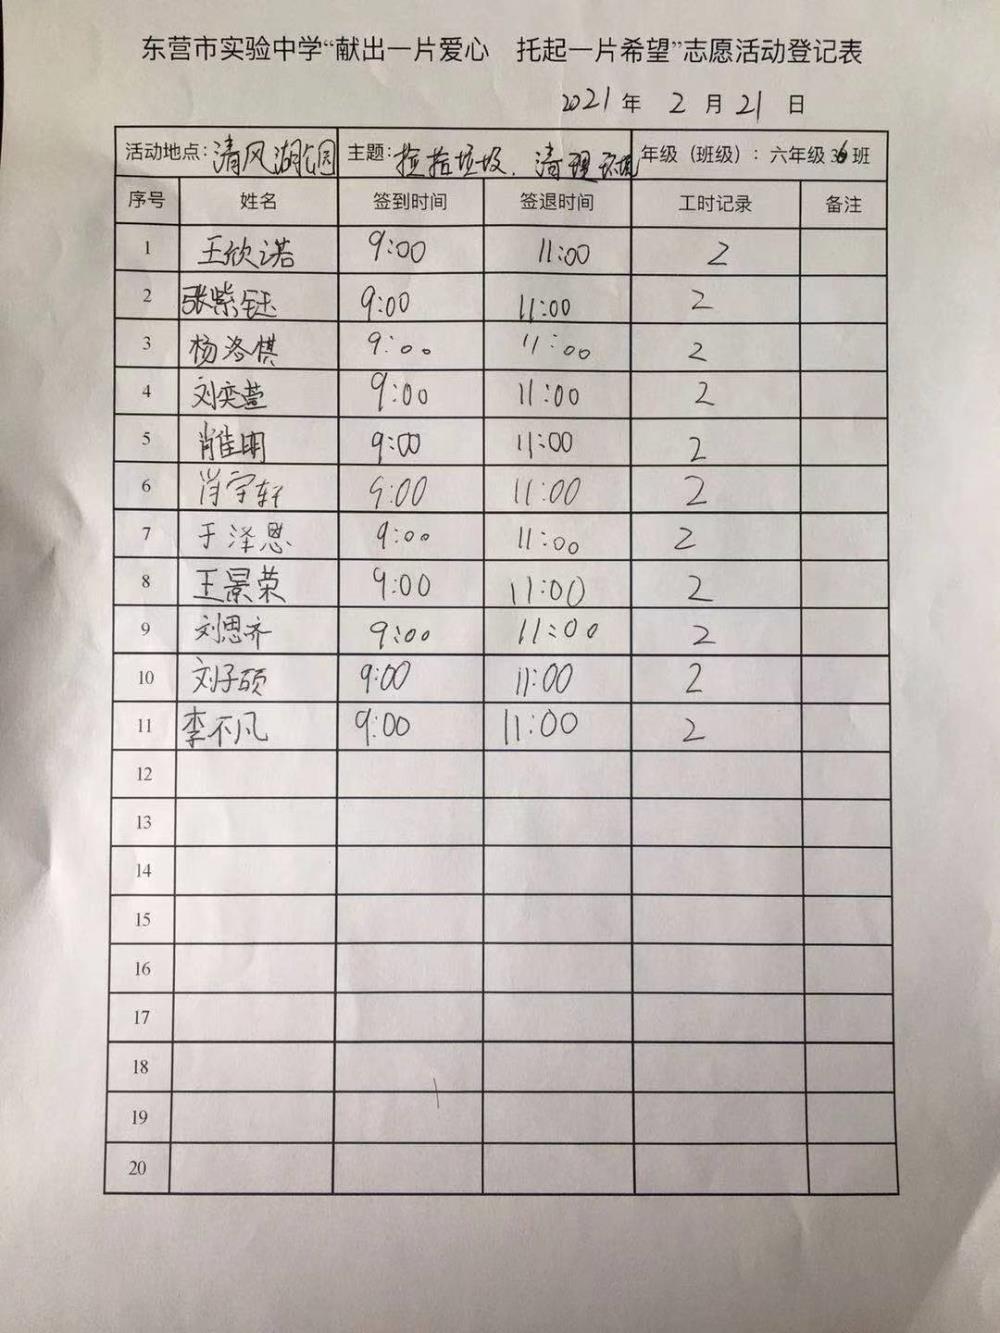 东营市实验中学“献出一片爱心 托起一片希望”志愿活动登记表
2021 年 2 月 21 日
活动地点：清风湖公园 主题：捡拾垃圾、清理环境 年级（班级）：六年级36班
序号 姓名 签到时间 签退时间 工时记录 备注
1 王欣诺 9:00 11:00 2
2 张紫钰 9:00 11:00 2
3 杨洛棋 9:00 11:00 2
4 刘奕萱 9:00 11:00 2
5 肖佳明 9:00 11:00 2
6 肖宇轩 9:00 11:00 2
7 于泽恩 9:00 11:00 2
8 王景荣 9:00 11:00 2
9 刘思齐 9:00 11:00 2
10 刘子硕 9:00 11:00 2
11 李不凡 9:00 11:00 2
12
13
14
15
16
17
18
19
20